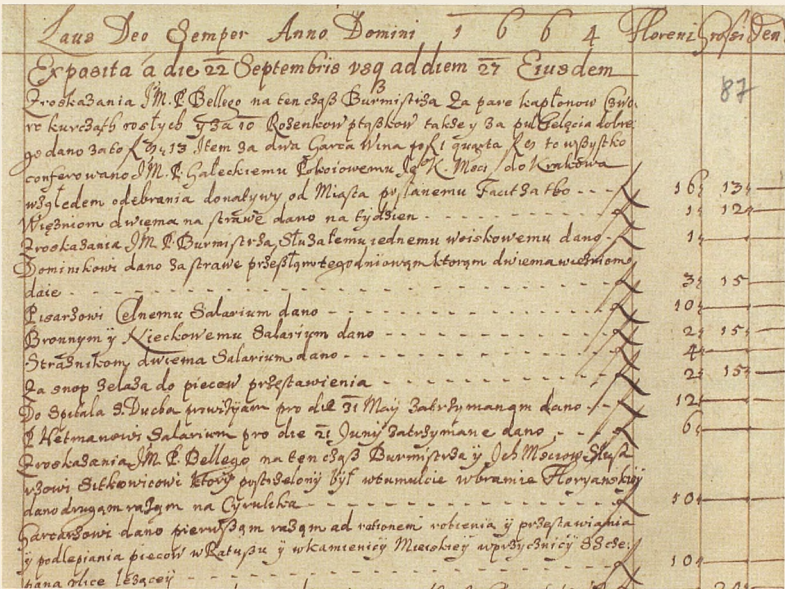 Laus Deo Semper Anno Domini 1664 Floreni Grossi Den
Exposita a die 22 Septembris usq ad diem 27 Eiusdem
87
Z roskazania JM. P. Bellego na ten czaß Burmistrza Za pare kapłonow Czwo
ro kurcząth rosłych y za 10 ptaßkow także y za puł Cielęcia dobre
go dano zato Item za dwa Garca Wina quarta to wßystko
conferowano JM. P. Gałeckiemu Pokoiowemu Je° K. Mci do Krakowa
względem odebrania donatywy od Miasta posłanemu 16 13
Więzniom dwiema na strawę dano na tydzien 1 12
Z roskazania JM P Burmistrza, Służałemu iednemu woiskowemu dano 1
Dominikowi dano za strawe przeßłą tegodniową ktorą dwiema więzniom
daie 3 15
Pisarzowi Celnemu Salarium dano 10
Bronnym y Kieckowemu Salarium dano 2 15
Strażnikom dwiema Salarium dano 4
Za snop żelaza do piecow przestawienia 2 15
Do Spitala S. Ducha prowizyą pro die 31 Maij zatrzymaną dano 12
P Hetmanowi Salarium pro die 21 Junij zatrzymane dano 6
Z roskazania JM. P. Bellego na ten czaß Burmistrza y Ich Mciow
Sitkowicowi ktory postrzelony był w tumulcie w bramie Floryanskiey
dano drugą razą na Cyrulika 10
Garcarzowi dano pierwßą razą ad rationem robienia y przestawiania
y podlepiania piecow w Ratußu y w kamienicy Mieiskiey w przycznicy Szcze
pana ulice leżącey 10